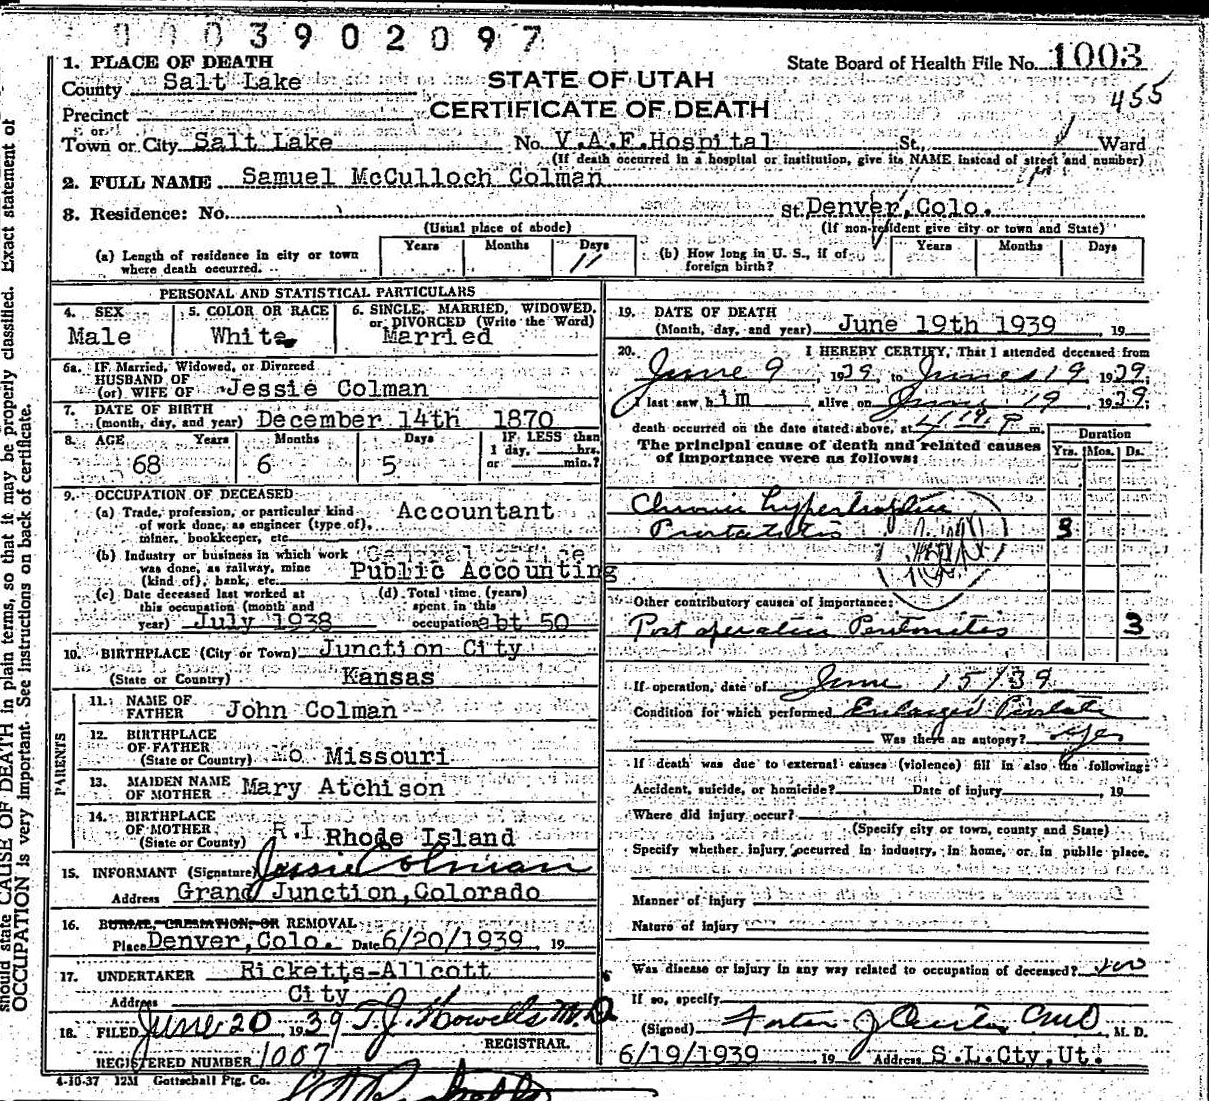 0003902097
1. PLACE OF DEATH
State Board of Health File No. 1003
County Salt Lake
STATE OF UTAH
455
Precinct
CERTIFICATE OF DEATH
or
Town or City Salt Lake No. V.A.F. Hospital St. Ward
(If death occurred in a hospital or institution, give its NAME instead of street and number)
2. FULL NAME Samuel McCulloch Colman
3. Residence: No. St. Denver, Colo.
(Usual place of abode) (If non-resident give city or town and State)
(a) Length of residence in city or town where death occurred. Years Months Days 11
(b) How long in U. S., if of foreign birth? Years Months Days
PERSONAL AND STATISTICAL PARTICULARS
4. SEX 5. COLOR OR RACE 6. SINGLE, MARRIED, WIDOWED, or DIVORCED (Write the Word)
Male White Married
6a. IF Married, Widowed, or Divorced
HUSBAND OF
(or) WIFE OF Jessie Colman
7. DATE OF BIRTH
(month, day, and year) December 14th 1870
8. AGE Years Months Days IF LESS than
1 day, hrs.
or min.?
68 6 5
9. OCCUPATION OF DECEASED
(a) Trade, profession, or particular kind of work done, as engineer (type of), miner, bookkeeper, etc. Accountant
(b) Industry or business in which work was done, as railway, mine (kind of), bank, etc. General Office
Public Accounting
(c) Date deceased last worked at this occupation (month and year) July 1938
(d) Total time (years) spent in this occupation abt 50
10. BIRTHPLACE (City or Town) Junction City
(State or Country) Kansas
PARENTS
11. NAME OF FATHER John Colman
12. BIRTHPLACE OF FATHER (State or Country) Mo Missouri
13. MAIDEN NAME OF MOTHER Mary Atchison
14. BIRTHPLACE OF MOTHER (State or Country) R.I Rhode Island
15. INFORMANT (Signature) Jessie Colman
Address Grand Junction, Colorado
16. BURIAL, CREMATION OR REMOVAL
Place Denver, Colo. Date 6/20/1939, 19
17. UNDERTAKER Ricketts-Allcott
Address City
18. FILED June 20 1939 T.J. Howells M.D.
REGISTRAR.
REGISTERED NUMBER 1007
19. DATE OF DEATH
(Month, day, and year) June 19th 1939, 19
20. I HEREBY CERTIFY, That I attended deceased from
June 9, 1939, to June 19 1939;
I last saw him alive on June 19, 1939,
death occurred on the date stated above, at m.
The principal cause of death and related causes of importance were as follows:
Duration
Yrs. Mos. Ds.
Chronic hypertrophic
Prostatitis 3
Other contributory causes of importance:
Post operative Peritonitis 3
If operation, date of June 15/39
Condition for which performed Enlarged Prostate
Was there an autopsy? Yes
If death was due to external causes (violence) fill in also the following:
Accident, suicide, or homicide? Date of injury, 19
Where did injury occur?
(Specify city or town, county and State)
Specify whether injury occurred in industry, in home, or in public place.
Manner of injury
Nature of injury
Was disease or injury in any way related to occupation of deceased? no
If so, specify
(Signed) M. D.
6/19/1939 19 Address S.L.Cty, Ut.
4-10-37 12M Gottschall Ptg. Co.
should state CAUSE OF DEATH in plain terms, so that it may be properly classified. Exact statement of
OCCUPATION is very important. See instructions on back of certificate.